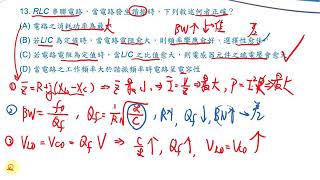 13. RLC 串聯電路，當電路發生諧振時，下列敘述何者正確？
(A) 電路之消耗功率為最大 BW↑
(B) 若L/C 為定值時，當電路電阻愈大，則頻率響應愈好，選擇性愈佳
(C) 若電路電阻為定值時，當L/C 之比值愈大，則電感或電容元件之端電壓會愈大
(D) 當電路之工作頻率大於諧振頻率時電路呈電容性
① Z=R+j(XL-XC) ⇒ Z=最小, I= ↑最大, P=I²R ↑最大
② BW= Qf, Qf= 1/R √L/C, R↑, Qf↓, BW↑
③ VLO=VCO=Qf V ⇒ ↑, Qf↑, VLO=VCO↑